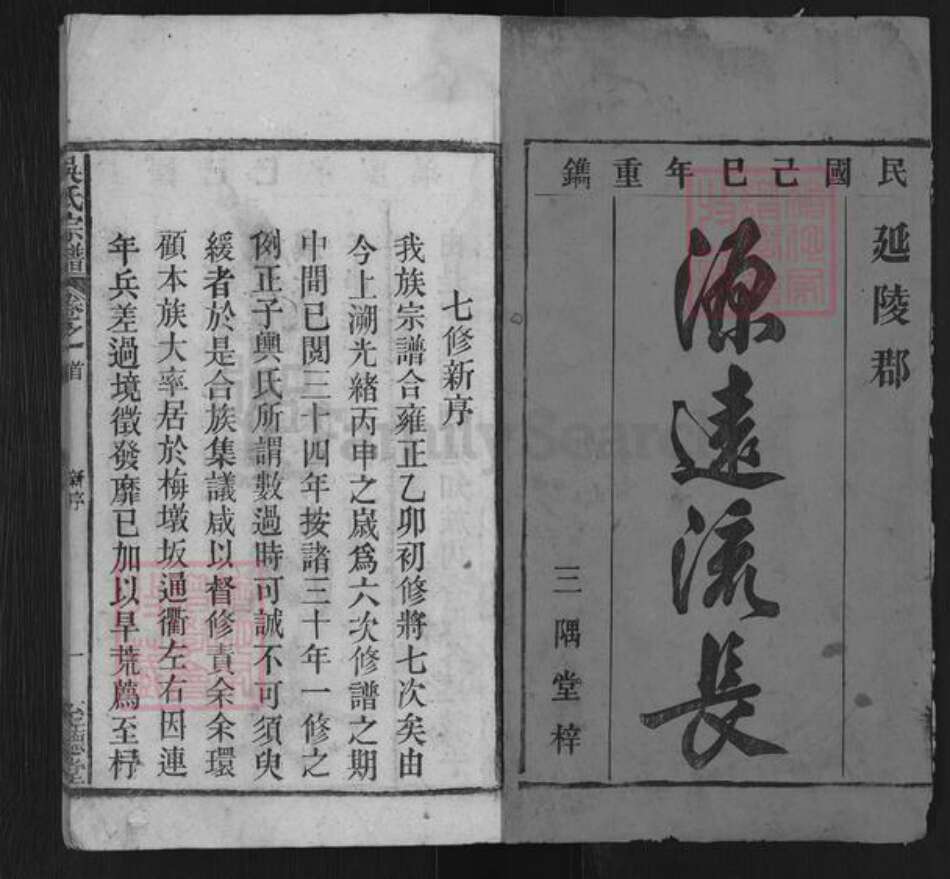 民國己巳年重鐫
延陵郡
源遠流長
三隅堂梓
七修新序
我族宗譜合雍正乙卯初修將七次矣由
今上溯光緒丙申之歲爲六次修譜之期
中間已閱三十四年按諸三十年一修之
例正子輿氏所謂數過時可誠不可須臾
緩者於是合族集議咸以督修責余余環
顧本族大率居於梅墩坂通衢左右因連
年兵差過境徵發靡已加以旱荒薦至杼
吳氏宗譜
卷之一首
新序
一
FamilySearch